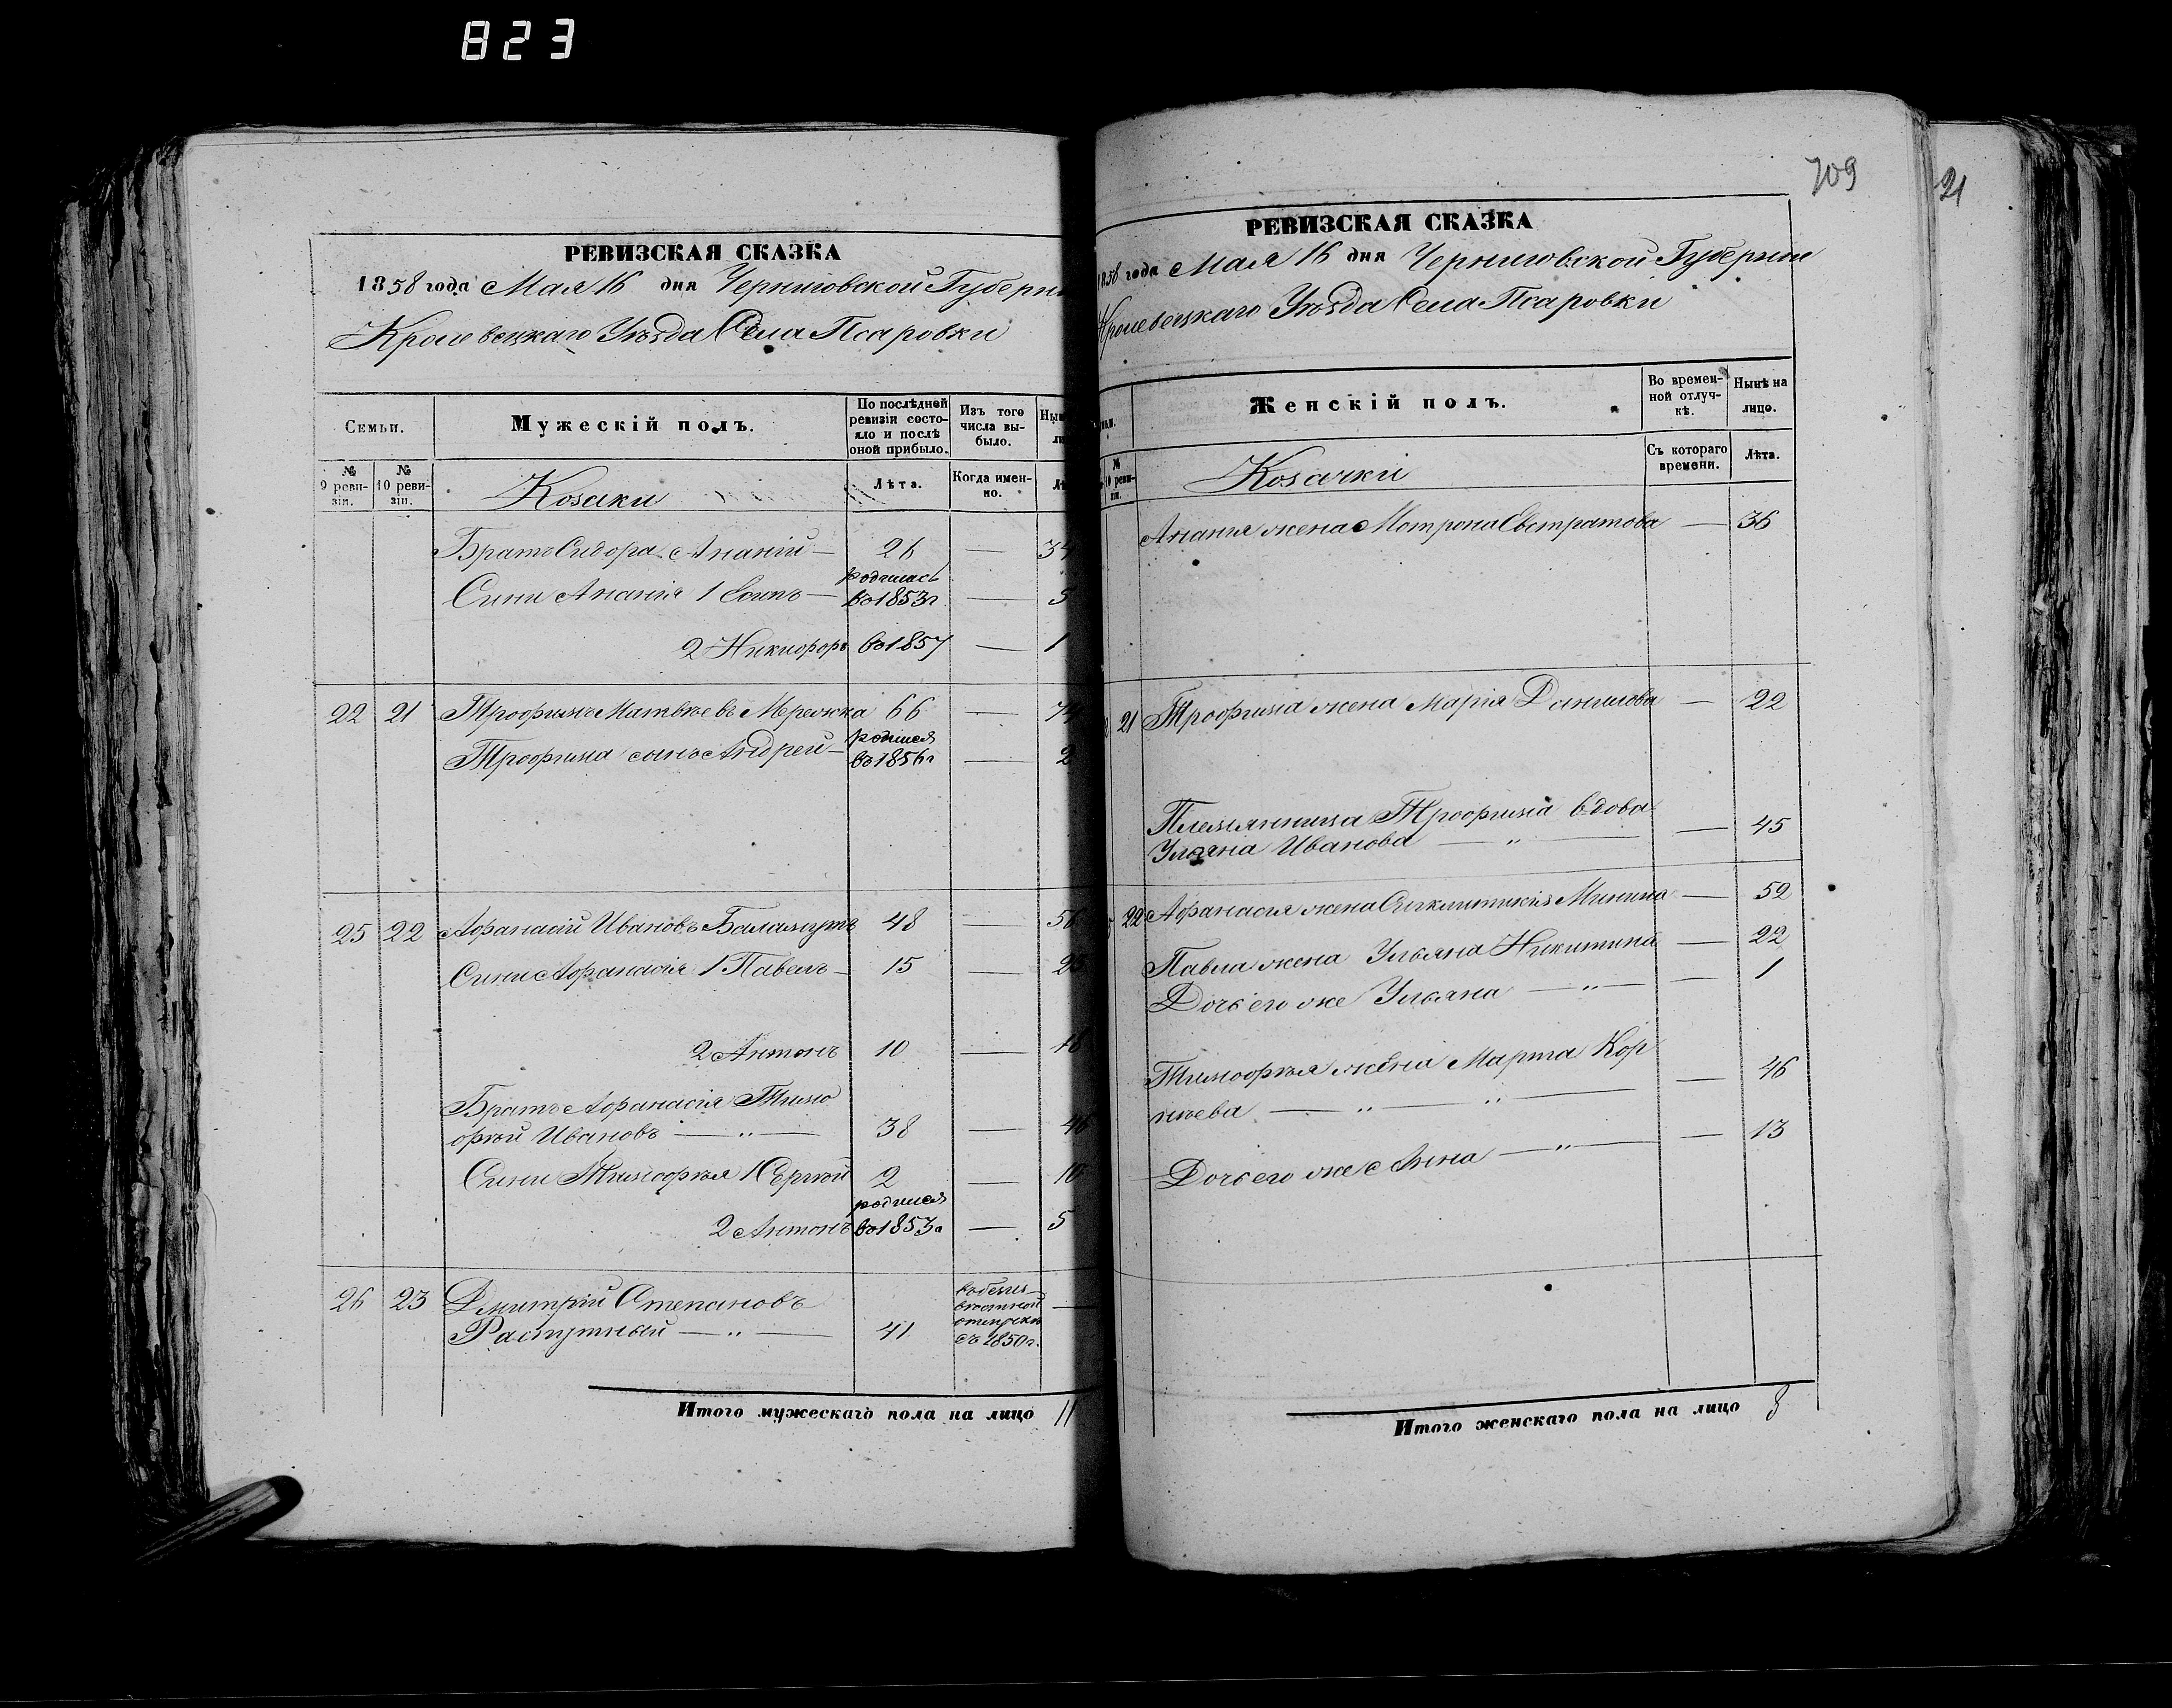 823
РЕВИЗСКАЯ СКАЗКА
1858 года Мая 16 дня Черниговской Губерн
Кролевецкаго Уѣзда Села Псаровки
Семьи.
Мужескій полъ.
По послѣдней ревизіи состояло и послѣ оной прибыло.
Изъ того числа выбыло.
№ 9 ревизіи.
№ 10 ревизіи.
Козаки
Лѣта.
Когда именно.
Братъ Сидора Ананій — 26 — 34
Сини Ананія 1 Осипъ — родились въ 1853 г — 5
2 Никифоръ въ 1857 — 1
22 21 Трофимъ Матвѣевъ Мережка 66 —
Трофима сынъ Андрей — родился въ 1856 г — 2
25 22 Афанасій Ивановъ Баламутъ 48 — 56
Сини Афанасія 1 Павелъ — 15 —
2 Антонъ 10 —
Братъ Афанасія Тимо
фѣй Ивановъ — „ — 38 — 46
Сини Тимофѣя 1 Сергѣй 2 — 10
2 Антонъ родился въ 1853 г — 5
26 23 Дмитрій Степановъ
Распутный — „ — 41
съ 1850 г. —
Итого мужескаго пола на лицо 11
709
21
РЕВИЗСКАЯ СКАЗКА
1858 года Мая 16 дня Черниговской Губерніи
Кролевецкаго Уѣзда Села Псаровки
Женскій полъ.
Во временной отлучкѣ.
Нынѣ на лицо.
№ 10 ревизіи.
Козачки
Съ котораго времени.
Лѣта.
Ананія жена Мотрона Евстратова — 36
21 Трофима жена Марія Данилова — 22
Племянница Трофима вдова
Ульяна Иванова — „ — — 45
22 Афанасія жена Синклитикія Минина — 52
Павла жена Ульяна Никитина — 22
Дочь его же Ульяна — „ — — 1
Тимофѣя жена Марта Кор
нѣева — „ — „ — — 46
Дочь его же Анна — „ — — 13
Итого женскаго пола на лицо 8